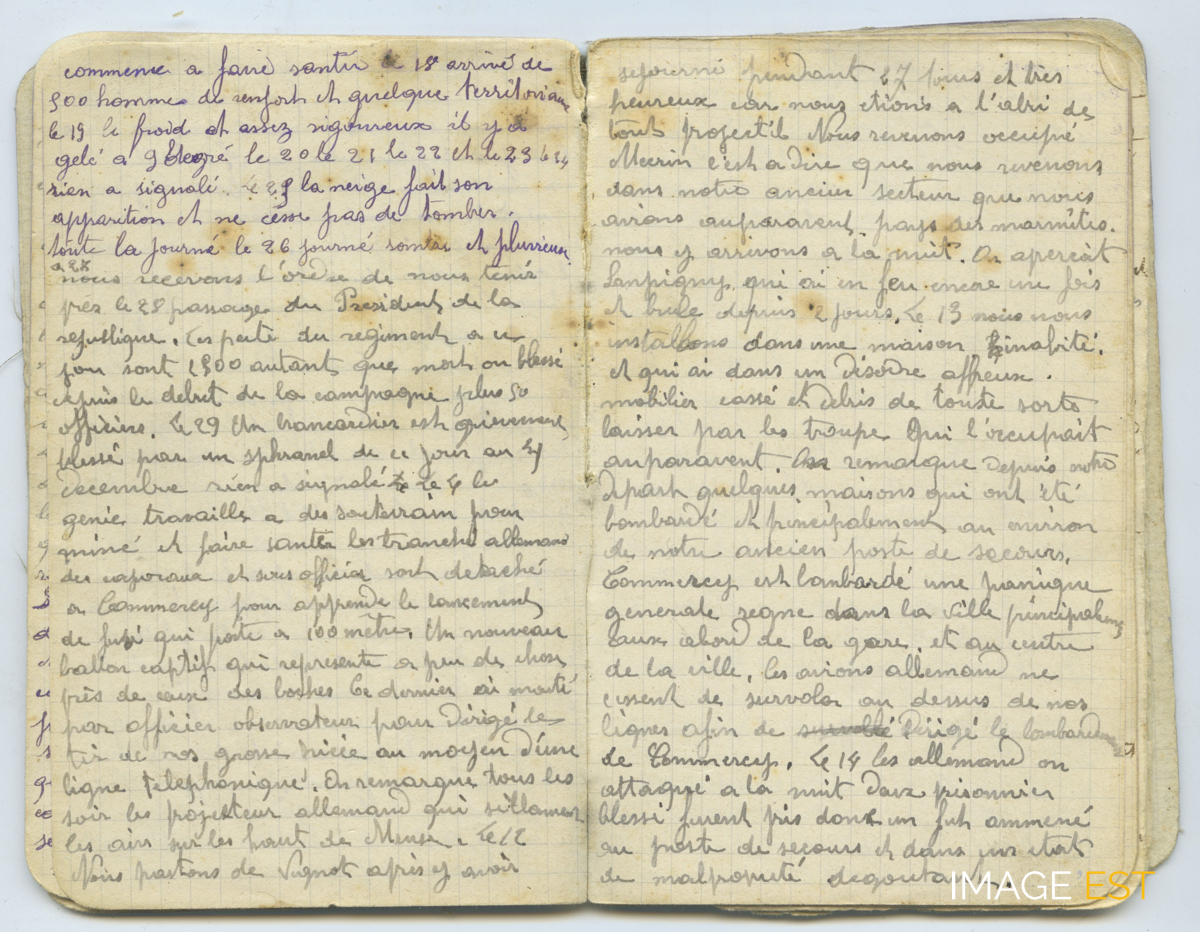 commence a faire santir le 18 arrivé de
900 hommes de renfort et quelque territoriaux
le 19 le froid et assez rigoureux il y a
gelé a 9 degré le 20 le 21 le 22 et le 23 le 24
rien a signalé. Le 25 la neige fait son
apparition et ne cesse pas de tomber.
toute la journé le 26 journé sombre et pluvieuse
nous recevons l'ordre de nous tenir
près le 28 passage du President de la
republique. Les perte du regiment a ce
jour sont 1900 autant que mort ou blessé
depuis le debut de la campagne plus 50
officiers. Le 29 Un brancardier est grievement
blessé par un sphranel de ce jour au
decembre rien a signalé le 4 le
genie travaille a des souterrain pour
miné et faire sauter les tranché allemand
des caporaux et sous officier sont detaché
a Commercy pour apprendre le lancement
de fusé qui porte a 100 mètre. Un nouveau
ballon captif qui represente a peu de chose
près de ceux des boches ce dernier ai monté
par officier observateur pour dirigé le
tir de nos grosse pièce au moyen d'une
ligne telephonique. On remarque tous les
soir les projekteur allemand qui sillonnent
les airs sur les haut de Meuse. Le 12
Nous partons de Vignot après y avoir
sejourné pendant 27 jours et très
heureux car nous etions a l'abri de
tout projectil Nous revenons occupé
Mecrin c'est a dire que nous revenons
dans notre ancien secteur que nous
avions auparavent pays des marmites.
nous y arrivons a la nuit. On aperçoit
Sanpigny qui ai en feu encore une fois
et brule depuis 2 jours. Le 13 nous nous
installons dans une maison inabité.
et qui ai dans un disordre affreux.
mobilier cassé et debris de toute sorte
laisser par les troupe qui l'occupait
auparavent. On remarque depuis notre
depart quelques maisons qui ont été
bombardé et principalement au environ
de notre ancien poste de secours.
Commercy est bombardé une panique
generale regne dans la ville principalement
eaux abord de la gare. et au centre
de la ville. les avions allemand ne
cessent de survoler au dessus de nos
lignes afin de dirigé le bombardement
de Commercy. Le 14 les allemand on
attaqué a la nuit deux prisonnier
blessé furent pris dont un fut ammené
au poste de secours et dans un etat
de malpropeté degoutant.
IMAGE EST